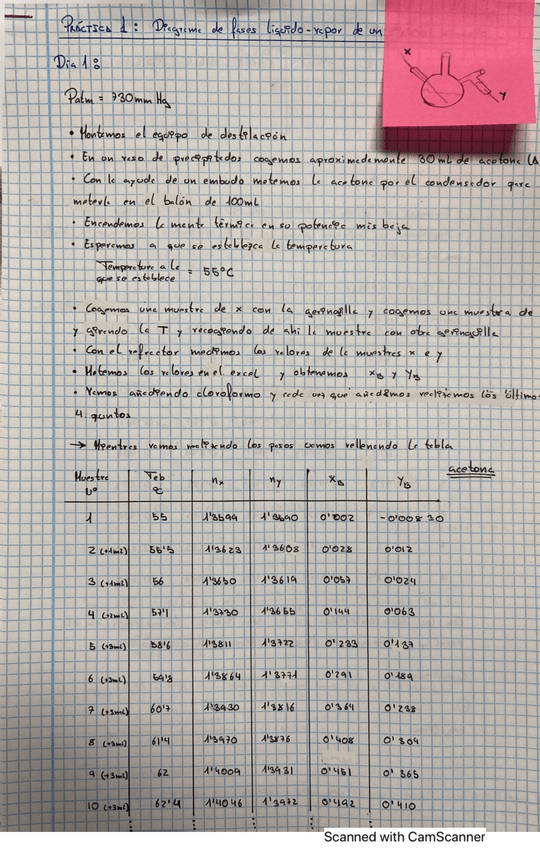 PRÁCTICA 1: Diagrama de fases líquido-vapor de un
x
y
Día 1:
Patm = 730mm Hg
• Montamos el equipo de destilación
• En un vaso de precipitados cogemos aproximadamente 30 mL de acetona (A
• Con la ayuda de un embudo metemos la acetona por el condensador para
meterla en el balón de 100mL
• Encendemos la manta térmica en su potencia más baja
• Esperamos a que se establezca la temperatura
Temperatura a la
que se establece = 55°C
• Cogemos una muestra de x con la geringilla y cogemos una muestra de
y girando la T y recogiendo de ahí la muestra con otra geringuilla
• Con el refractor medimos los valores de la muestras x e y
• Metemos los valores en el excel y obtenemos xB y YB
• Vamos añadiendo cloroformo y cada vez que añadimos realizamos los últimos
4 puntos
→ Mientras vamos realizando los pasos vamos rellenando la tabla
acetona
Muestra Nº Teb ºC nx ny XB YB
1 55 1'3599 1'3590 0'002 -0'00830
2 (+1mL) 55'5 1'3623 1'3608 0'028 0'012
3 (+1mL) 56 1'3650 1'3619 0'057 0'024
4 (+2mL) 57'1 1'3730 1'3655 0'144 0'063
5 (+3mL) 58'6 1'3811 1'3722 0'233 0'137
6 (+3mL) 59'8 1'3864 1'3771 0'291 0'189
7 (+3mL) 60'7 1'3930 1'3816 0'364 0'238
8 (+3mL) 61'4 1'3970 1'3876 0'408 0'304
9 (+3mL) 62 1'4009 1'3931 0'451 0'365
10 (+3mL) 62'4 1'4046 1'3972 0'492 0'410
Scanned with CamScanner